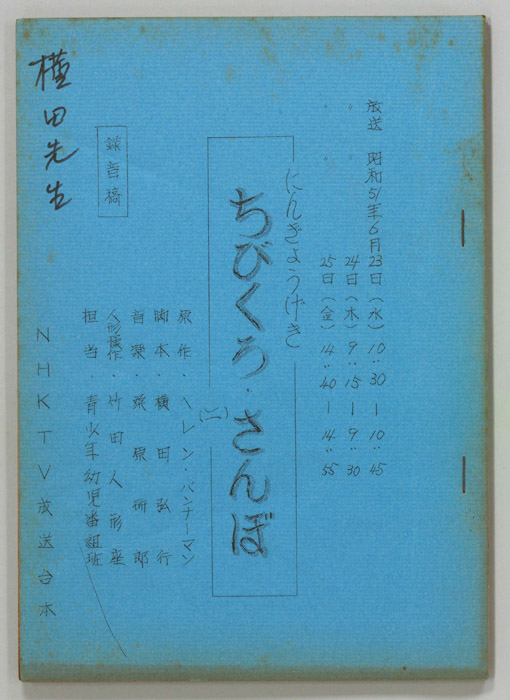 放送 昭和51年6月23日（水）10：30－10：45
〃 〃 24日（木）9：15－9：30
〃 〃 25日（金）14：40－14：55
にんぎょうげき
ちびくろ・さんぼ
（二）
原作・ヘレン・バンナーマン
脚本・横田弘行
音楽・桑原研郎
人形操作・竹田人形座
担当・青少年幼児番組班
録音稿
横田先生
NHKTV放送台本